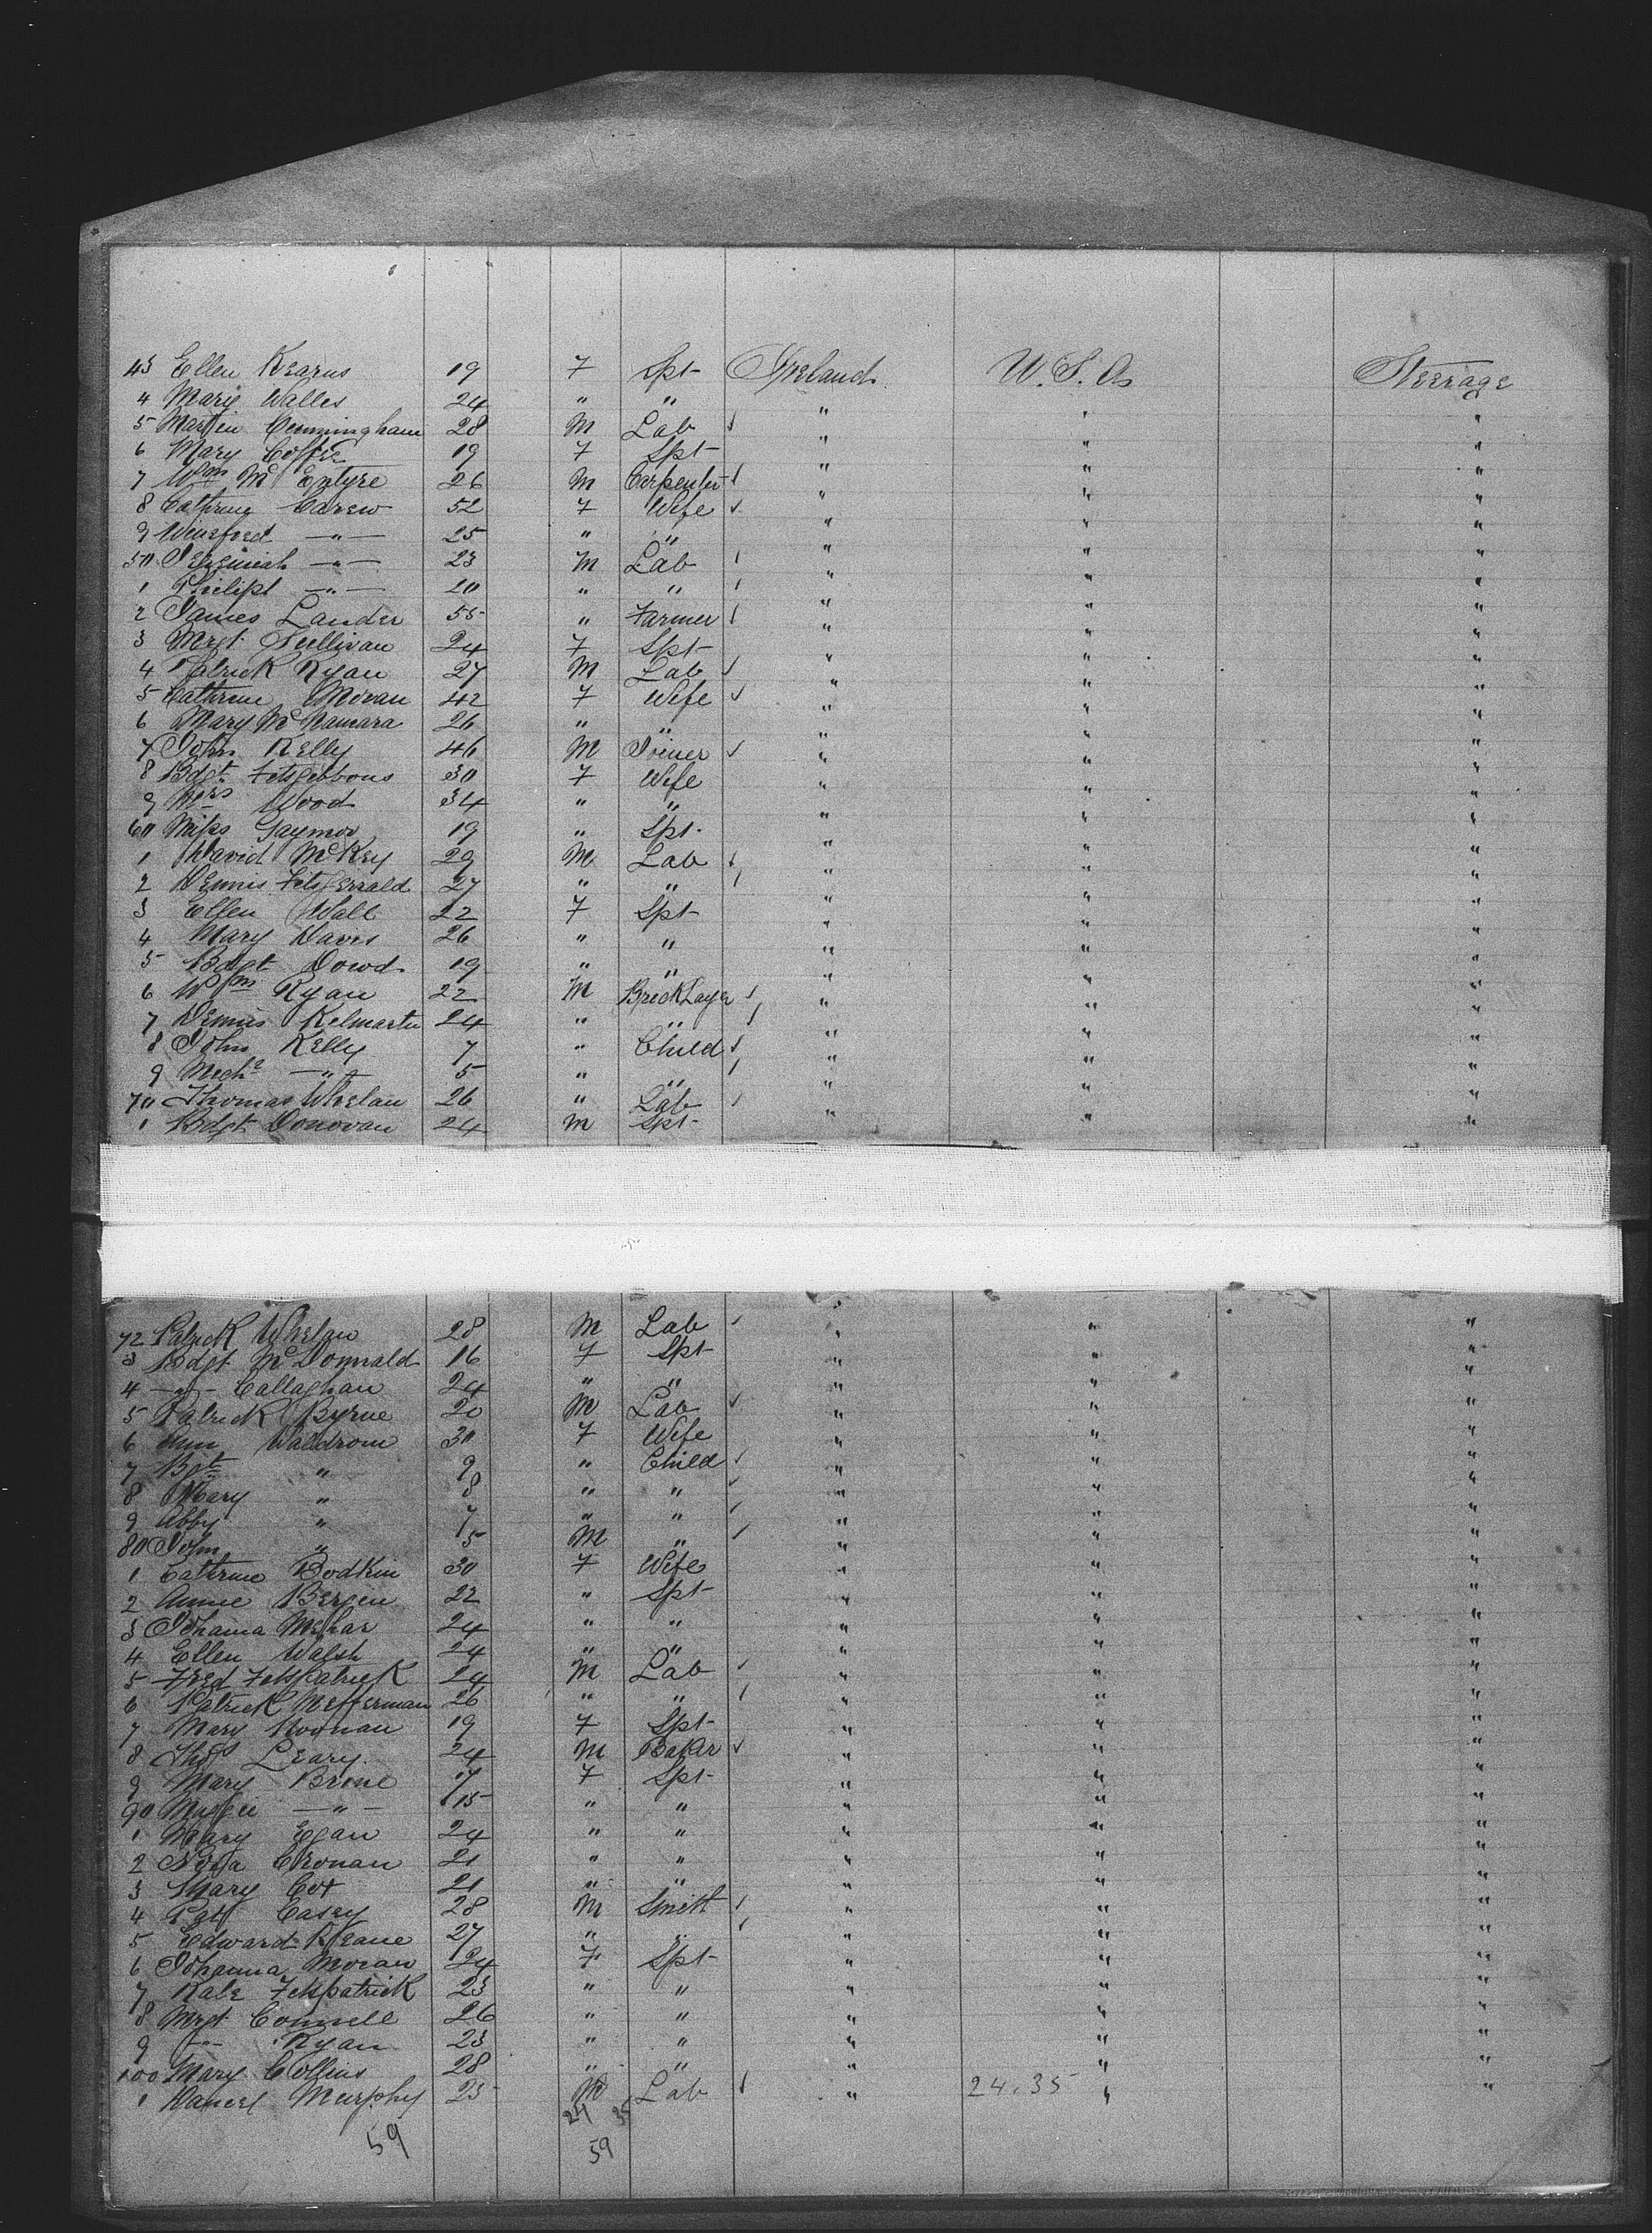 43 Ellen Kearns 19 F Spt Ireland U.S.A. Steerage
4 Mary Walles 24 " " " " "
5 Martin Cunningham 28 M Lab " " "
6 Mary Coffee 19 F Spt " " "
7 Wm McEntyre 26 M Carpenter " " "
8 Cathrine Carew 52 F Wife " " "
9 Wineford —"— 25 " " " " "
50 Jeremiah —"— 23 M Lab " " "
1 Philipt —"— 20 " " " " "
2 James Lander 55 " Farmer " " "
3 Mrgt Sullivan 24 F Spt " " "
4 Patrick Ryan 27 M Lab " " "
5 Cathrine Moran 42 F Wife " " "
6 Mary McNamara 26 " " " " "
7 John Kelly 46 M Joiner " " "
8 Bdgt Fitsgibbons 30 F Wife " " "
9 Mrs Wood 34 " " " " "
60 Miss Gaymor 19 " Spt " " "
1 David McKey 29 M Lab " " "
2 Dennis Fitsgerrald 27 " " " " "
3 Ellen Wall 22 F Spt " " "
4 Mary Davis 26 " " " " "
5 Bdgt Dowd 19 " " " " "
6 Wm Ryan 22 M BrickLayer " " "
7 Dennis Kelmartin 24 " " " " "
8 John Kelly 7 " Child " " "
9 Michl —"— 5 " " " " "
70 Thomas Whelan 26 " Lab " " "
1 Bdgt Donovan 24 M Spt " " "
72 Patrick Whelan 28 M Lab " " "
3 Bdgt McDonnald 16 F Spt " " "
4 —"— Callaghan 24 " " " " "
5 Patrick Byrne 20 M Lab " " "
6 Ann Waldrom 30 F Wife " " "
7 Bgt " 9 " Child " " "
8 Mary " 8 " " " " "
9 Abby " 7 " " " " "
80 John " 5 M " " " "
1 Cathrine Bodkin 30 F Wife " " "
2 Annie Bergen 22 " Spt " " "
3 Johanna Mehar 24 " " " " "
4 Ellen Walsh 24 " " " " "
5 Fred Fitspatrick 24 M Lab " " "
6 Patrick Hefferman 26 " " " " "
7 Mary Noonan 19 F Spt " " "
8 Thos Leary 24 M Baker " " "
9 Mary Brine 17 F Spt " " "
90 —"— 15 " " " " "
1 Mary Egan 24 " " " " "
2 Nora Cronan 21 " " " " "
3 Mary Cox 21 " " " " "
4 Patt Casey 28 M Smith " " "
5 Edward Keane 27 " " " " "
6 Johanna Moran 24 F Spt " " "
7 Kate Fitspatrick 23 " " " " "
8 Mrgt Connell 26 " " " " "
9 —"— Ryan 23 " " " " "
100 Mary Collins 28 " " " " "
1 Daniel Murphy 25 M Lab " 24.35 " "
24 35
59 59